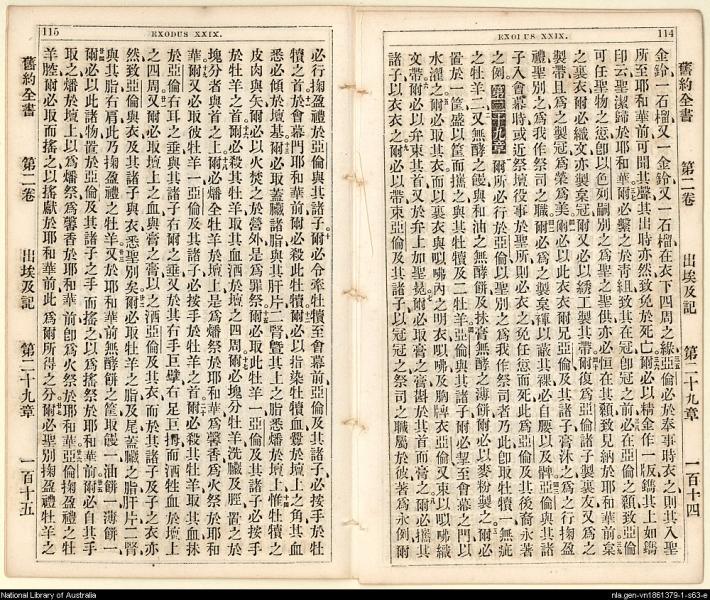 EXODUS XXIX.
114
舊約全書 第二卷 出埃及記 第二十九章 一百十四
金鈴一石榴又一金鈴又一石榴在衣下四周之緣亞倫必於奉事時衣之則其入聖
所至耶和華前可聞其聲其出時亦然致免於死亡爾必以精金作一版鐫其上如鐫
印云聖潔歸於耶和華爾必繫之於青紐致其在冠卽冠之前必在亞倫之額致亞倫
可任聖物之愆卽以色列嗣別之爲聖之聖供亦必恒在其額致見納於耶和華前
之裏衣爾必織文亦製枲冠爾又必以綉工製其帶爾復爲亞倫諸子製裏衣又爲之
製帶且爲之製冠爲榮爲美爾必以此衣衣爾兄亞倫及其諸子膏沐之爲之行掬盈
禮聖別之爲我作祭司之職爾必爲之製枲褌以蔽其裸必自腰以及髀亞倫與其諸
子入會幕時或近祭壇役事於聖所則必衣之免任愆而死此爲亞倫及其後裔永著
之例第二十九章爾所必行於亞倫以聖別之爲我作祭司者乃此卽取牡犢一無疵
之牡羊二又無酵之饅與和油之無酵餅及抹膏無酵之薄餅爾必以麥粉製之爾必
置於一筐盛以筐而攜之與其牡犢及二牡羊亞倫與其諸子爾必挈至會幕之門以
水濯之爾必取其衣而以裏衣與㕽咈內之明衣㕽咈及胸牌衣亞倫又束以㕽咈織
文帶爾必以弁束其首又於弁上加聖冕爾必取膏之膏斟於其首而膏之爾必攜其
諸子以衣衣之爾必以帶束亞倫及其諸子以冠冠之祭司之職屬於彼著爲永例爾
115
EXODUS XXIX.
必行掬盈禮於亞倫與其諸子爾必令牽牡犢至會幕前亞倫及其諸子必按手於牡
犢之首於會幕門耶和華前爾必殺此牡犢爾必以指染牡犢血釁於壇上之角其血
悉必傾於壇基爾必取蓋臟諸脂與其肝片二腎曁其上之脂悉燔於壇上惟牡犢之
皮肉與矢爾必以火焚之於營外是爲罪祭爾必取此牡羊一亞倫及其諸子必按手
於牡羊之首爾必殺其牡羊取其血洒於壇之四周爾必塊分牡羊洗臟及脛置之於
塊分者與首之上爾必燔全牡羊於壇上是爲燔祭於耶和華爲馨香爲火祭於耶和
華爾又必取彼牡羊一亞倫及其諸子必按手於牡羊之首爾必殺其牡羊取其血抹
於亞倫右耳之垂與其諸子右爾之垂又於其右手巨擘右足巨拇而洒牲血於壇上
之四周又爾必取壇上之血與膏之膏以之洒亞倫及其衣而於其諸子及子之衣亦
然致亞倫與衣及其諸子與衣悉聖別矣爾必取牡羊之脂及尾蓋臟之脂肝片二腎
與其脂右肩此乃掬盈禮之牡羊又於耶和華前無酵餅之筐取饅一油餅一薄餅一
爾必以此諸物置於亞倫及其諸子之手而搖之以爲搖祭於耶和華前爾必自其手
取之燔於壇上以爲燔祭爲馨香於耶和華前卽爲火祭於耶和華亞倫掬盈禮之牡
羊膛爾必取而搖之以爲搖獻於耶和華前此爲爾所得之分爾必聖別掬盈禮牡羊之
舊約全書 第二卷 出埃及記 第二十九章 一百十五
National Library of Australia
nla.gen-vn1861379-1-s63-e